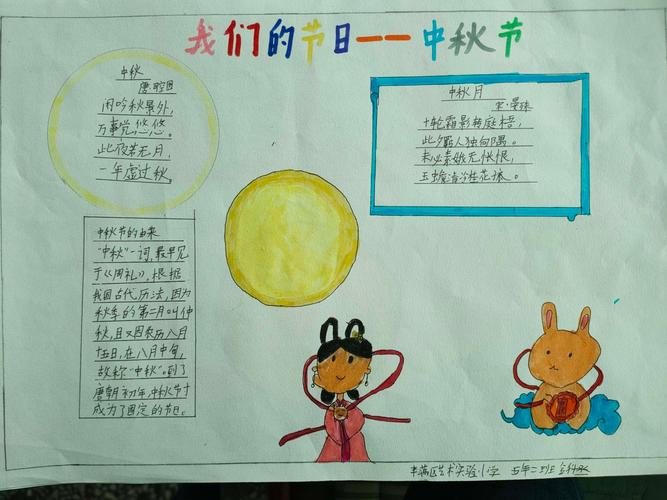 我们的节日——中秋节
中秋
唐·司空图
闲吟秋景外,
万事觉悠悠。
此夜若无月,
一年虚过秋
中秋月
宋·晏殊
十轮霜影转庭梧,
此夕羁人独向隅。
未必素娥无怅恨,
玉蟾清冷桂花孤。
中秋节的由来
"中秋"一词,最早见
于《周礼》,根据
我国古代历法,因为
秋季的第二月叫仲
秋,且又因农历八月
十五日,在八月中旬,
故称"中秋"。到了
唐朝初年,中秋节才
成为了固定的节日。
丰满区艺术实验小学 五年二班